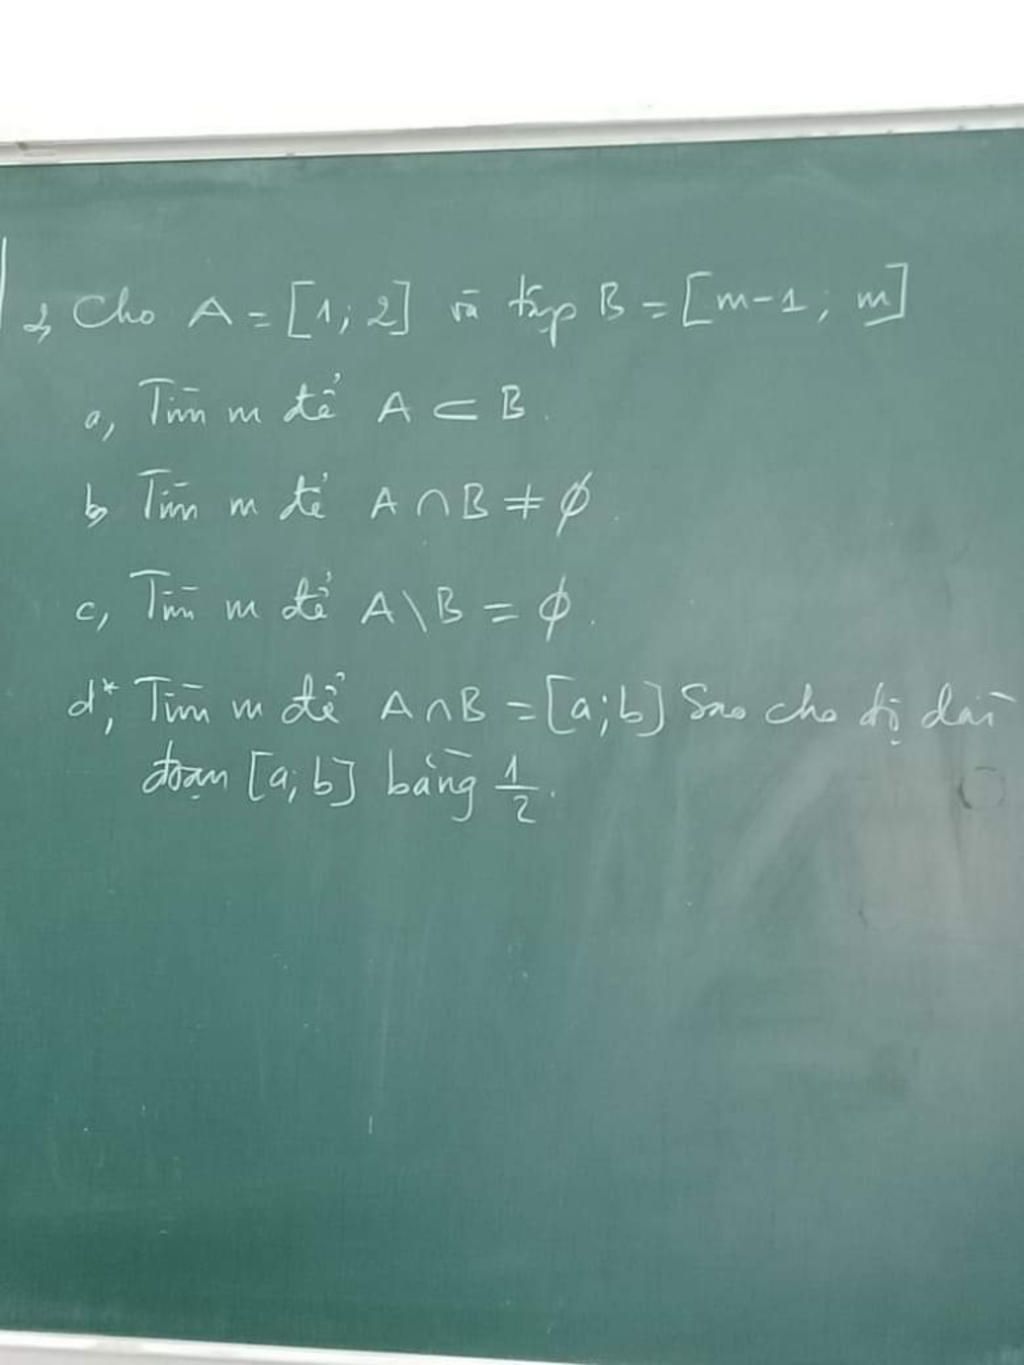 2, Cho A = [1; 2] và tập B = [m-1; m]
a, Tìm m để A ⊂ B.
b, Tìm m để A ∩ B ≠ ϕ.
c, Tìm m để A \ B = ϕ.
d*, Tìm m để A ∩ B = [a; b] Sao cho độ dài
đoạn [a; b] bằng 1/2.